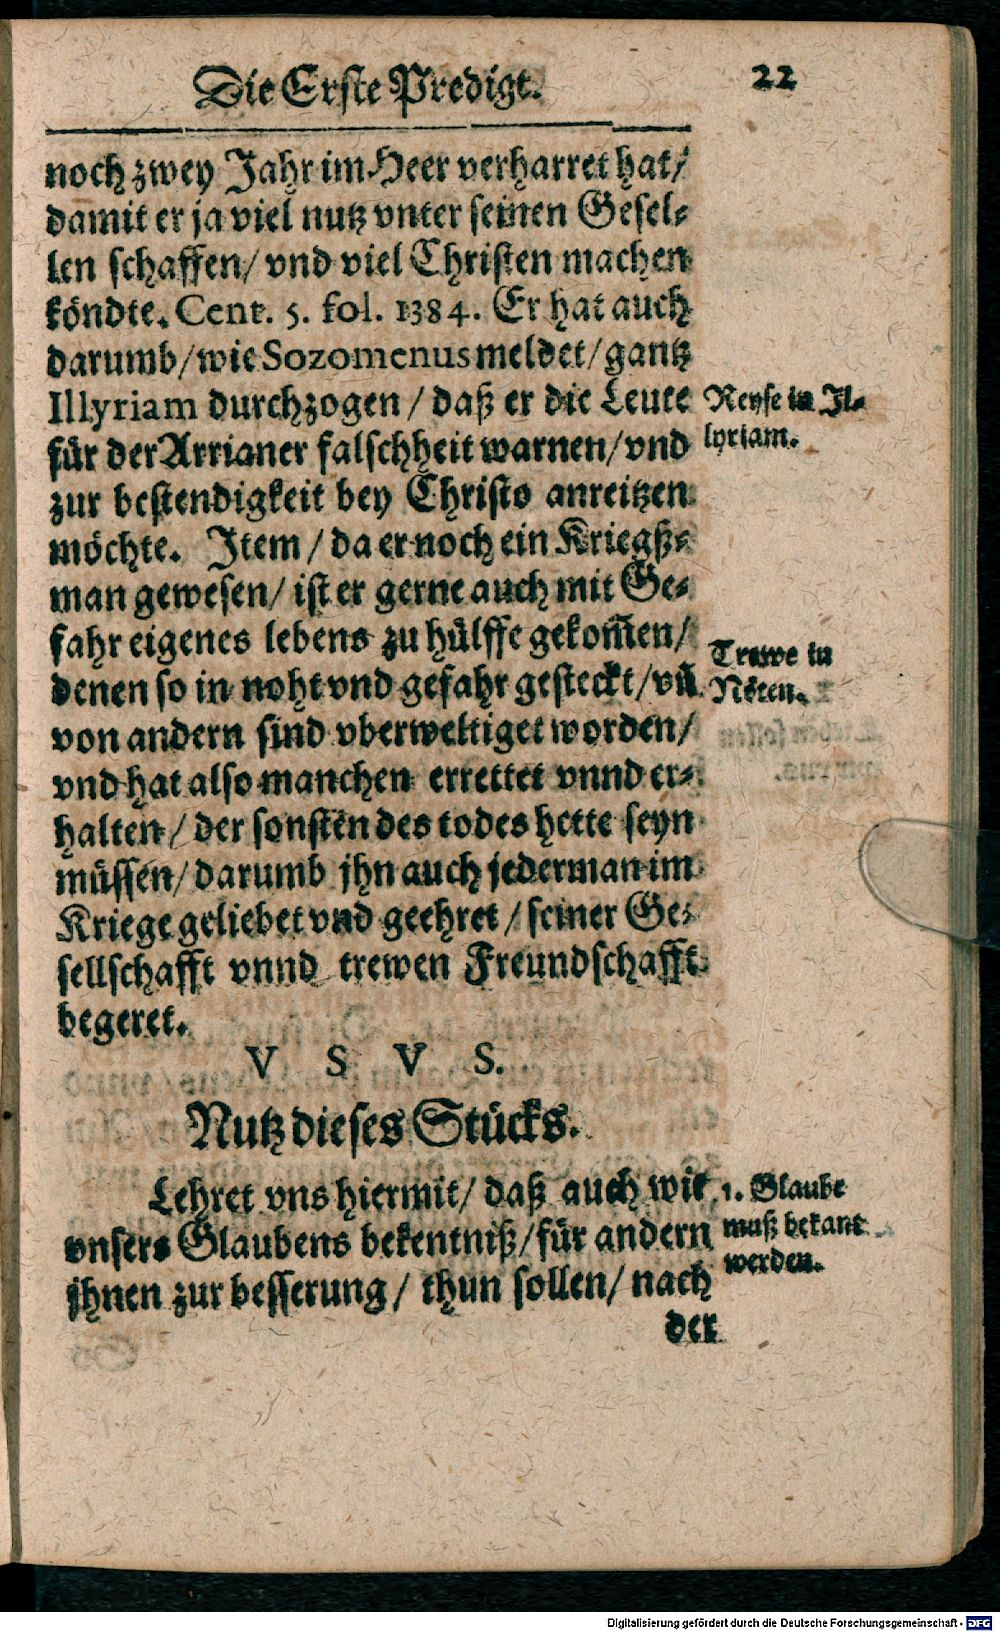 Die Erste Predigt. 22
noch zwey Jahr im Heer verharret hat/
damit er ja viel nutz vnter seinen Gesel⸗
len schaffen/ vnd viel Christen machen
köndte. Cent. 5. fol. 1384. Er hat auch
darumb/ wie Sozomenus meldet/ gantz
Illyriam durchzogen / daß er die Leute
für der Arrianer falschheit warnen/ vnd
zur bestendigkeit bey Christo anreitzen
möchte. Item / da er noch ein Kriegß⸗
man gewesen/ ist er gerne auch mit Ge⸗
fahr eigenes lebens zu hülffe gekom̃en/
denen so in noht vnd gefahr gesteckt/ vñ
von andern sind vberweltiget worden/
vnd hat also manchen errettet vnnd er⸗
halten / der sonsten des todes hette seyn
müssen/ darumb jhn auch jederman im
Kriege geliebet vnd geehret / seiner Ge⸗
sellschafft vnnd trewen Freundschafft
begeret.
Reyse in Il⸗
lyriam.
Trewe in
Nöten.
V S V S.
Nutz dieses Stücks.
Lehret vns hiermit/ daß auch wir
vnsers Glaubens bekentniß/ für andern
jhnen zur besserung / thun sollen/ nach
der
1. Glaube
muß bekant
werden.
Digitalisierung gefördert durch die Deutsche Forschungsgemeinschaft - DFG